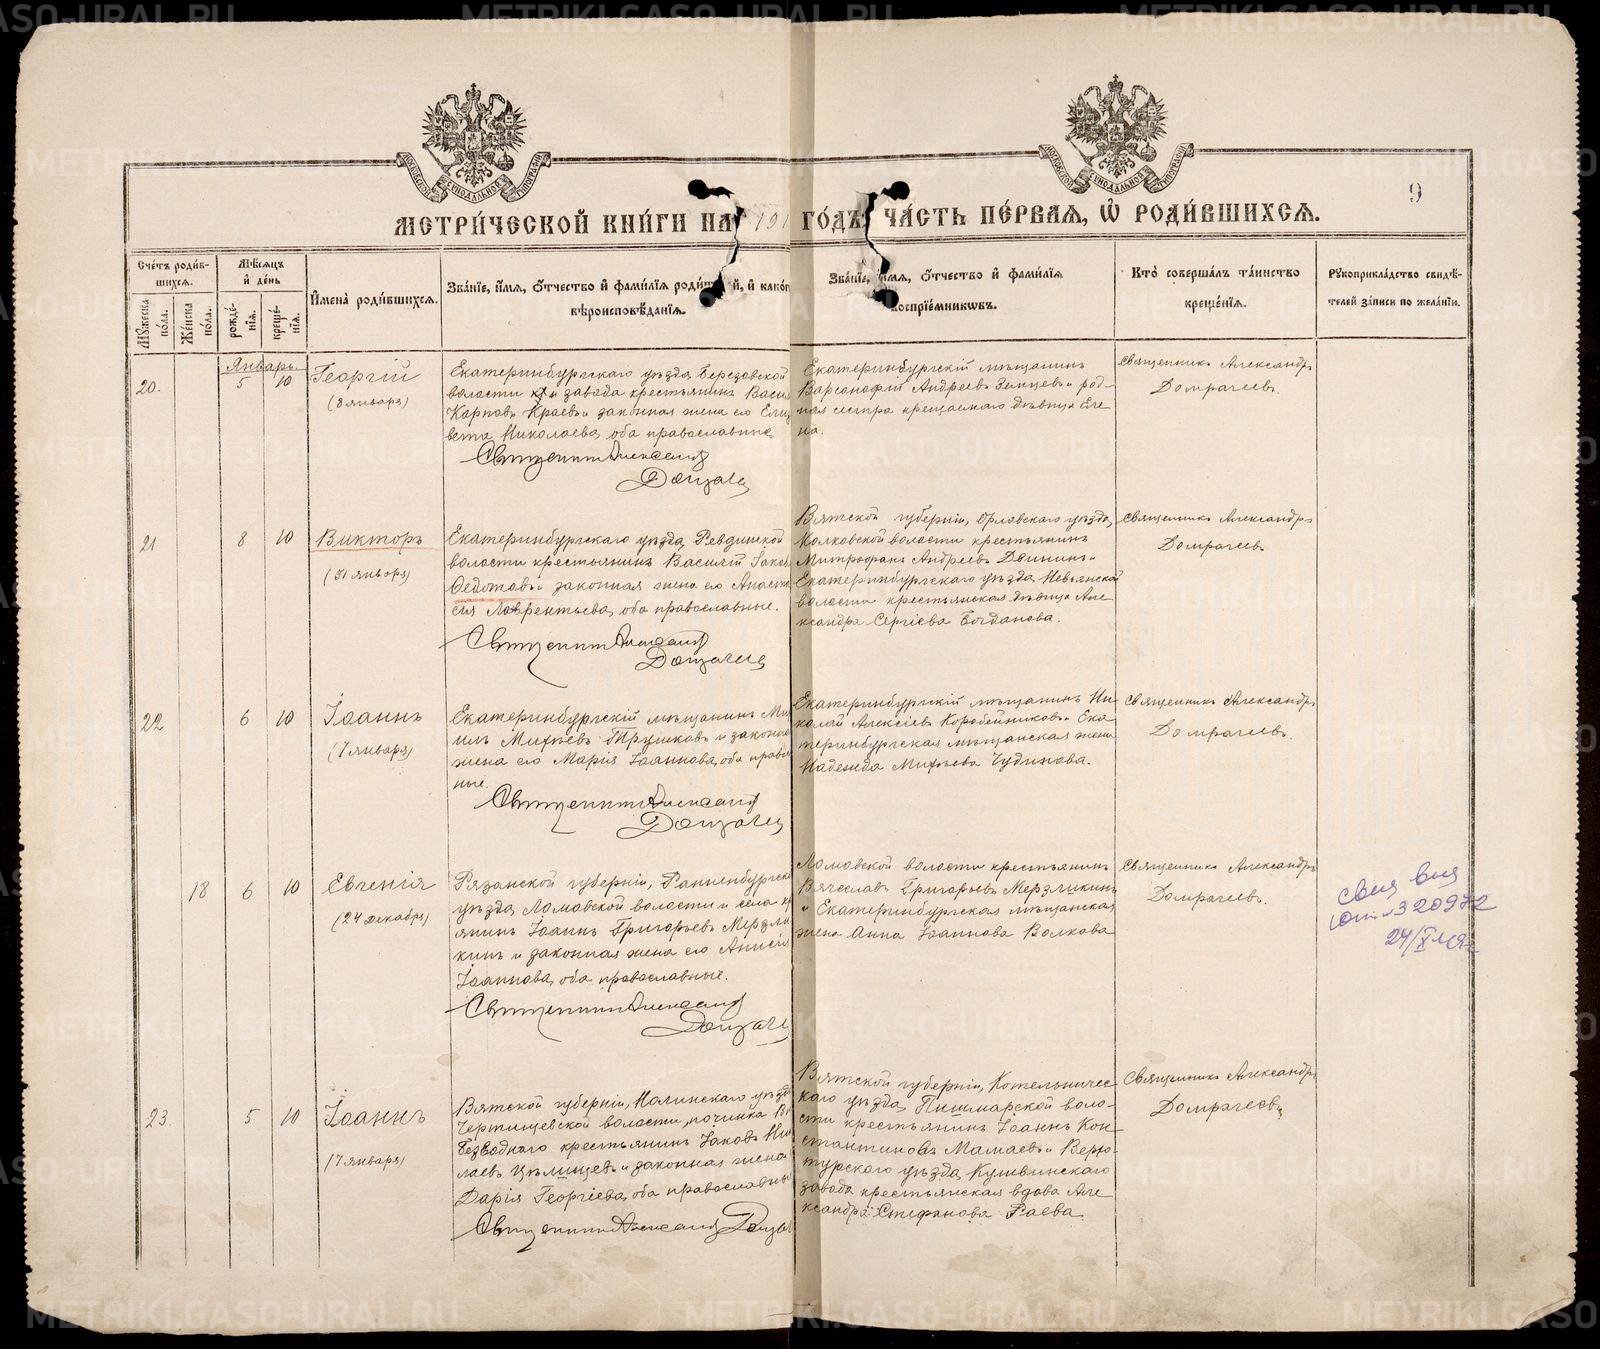 METRIKI.GASO-URAL.RU
МОСКОВСКОЙ СУНОДАЛЬНОЙ ТИПОГРАФІИ
МОСКОВСКОЙ СУНОДАЛЬНОЙ ТИПОГРАФІИ
9
МЕТРИ́ЧЕСКОЙ КНИ́ГИ НА 191 ГО́ДЪ, ЧА́СТЬ ПЕ́РВАЯ, Ѡ҆ РОДИ́ВШИХСЯ.
Сче́тъ роди́в-
шихся.
Му́жеска по́ла.
Же́нска по́ла.
Мѣ́сяцъ
и҆ де́нь
рожде́-
нїя.
креще́-
нїя.
И҆мена̀ роди́вшихся.
Зва́нїе, и҆́мя, ѻ҆́тчество и҆ фами́лїя роди́т й, и҆ како́г
вѣроисповѣ́данїя.
Зва́нїе, и҆́мя, ѻ҆́тчество и҆ фами́лїя
воспрїе́мниковъ.
Кто̀ соверша́лъ та́инство
креще́нїя.
Рукоприкла́дство свидѣ́-
телей за́писи по жела́нїю.
20.
Январь
5 10
Георгій
(8 января)
Екатеринбургскаго уѣзда, Березовской
волости и завода крестьянинъ Васи
Карповъ Краевъ и законная жена его Елиза
вета Николаева, оба православные.
Священникъ Александръ
Домрачев
Екатеринбургскій мѣщанинъ
Варсонофій Андреевъ Земцевъ и род-
ная сестра крещаемаго дѣвица Еле
на.
Священникъ Александръ
Домрачевъ.
21
8 10
Викторъ
(31 января)
Екатеринбургскаго уѣзда, Ревдинской
волости крестьянинъ Василій Іаков
Ѳедотовъ и законная жена его Анаста
сія Лаврентьева, оба православные.
Священникъ Александръ
Домрачев
Вятской губерніи, Орловскаго уѣзда,
волости крестьянинъ
Митрофанъ Андреевъ Двининъ и
Екатеринбургскаго уѣзда, Невьянской
волости крестьянская дѣвица Але
ксандра Сергіева Богданова.
Священникъ Александръ
Домрачевъ.
22
6 10
Іоаннъ
(7 января)
Екатеринбургскій мѣщанинъ Миха
илъ Михѣевъ Трушковъ и законная
жена его Марія Іоаннова, оба православ
ные.
Священникъ Александръ
Домрачев
Екатеринбургскій мѣщанинъ Ни
колай Алексіевъ Коробейниковъ и Ека
теринбургская мѣщанская жена
Надежда Михѣева Чудинова.
Священникъ Александръ
Домрачевъ.
18
6 10
Евгенія
(24 декабря)
Рязанской губерніи, Раненбургска
уѣзда, Ломовской волости и села кр
янинъ Іоаннъ Григорьевъ Мерзли
кинъ и законная жена его Анисія
Іоаннова, оба православные.
Священникъ Александръ
Домрачев
Ломовской волости крестьянинъ
Вячеславъ Григорьевъ Мерзликинъ
и Екатеринбургская мѣщанская
жена Анна Іоаннова Волкова
Священникъ Александръ
Домрачевъ.
320972
23.
5 10
Іоаннъ
(7 января)
Вятской губерніи, Малмыжскаго уѣзда
волости, починка
Безводнаго крестьянинъ Іаковъ Ник
лаевъ Цѣлищевъ и законная жена
Дарія Георгіева, оба православны
Священникъ Александръ Домрач
Вятской губерніи, Котельничес-
каго уѣзда, воло-
сти крестьянинъ Іоаннъ Кон
стантиновъ Мамаевъ и Верхо-
турскаго уѣзда, Кушвинскаго
завода крестьянская вдова Але
ксандра Стефанова Раева.
Священникъ Александръ
Домрачевъ